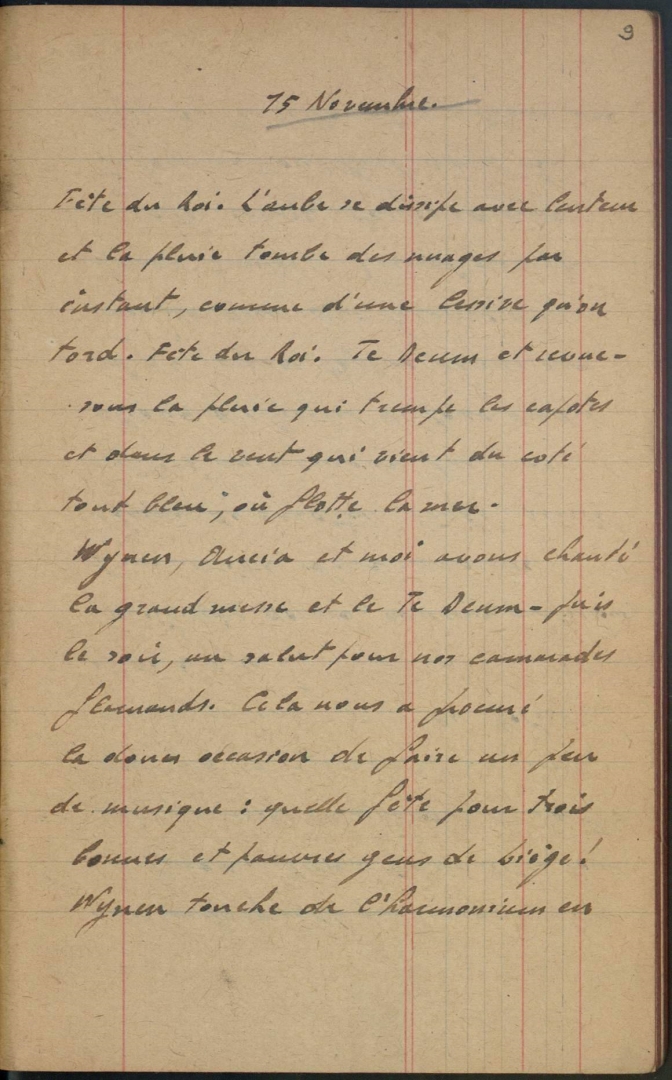 9
15 Novembre.
Fête du Roi. L'aube se dissipe avec lenteur
et la pluie tombe des nuages par
instant, comme d'une lessive qu'on
tord. Fête du Roi. Te Deum et revue -
sous la pluie qui trempe les capotes
et dans le vent qui vient du coté
tout bleu, où flotte la mer.
Wynen, et moi avons chanté
la grand messe et le Te Deum - puis
le soir, au salut pour nos camarades
flamands. Cela nous a procuré
la douce occasion de faire un peu
de musique : quelle fête pour trois
bonnes et pauvres gens de Liège !
Wynen touche de l'harmonium en